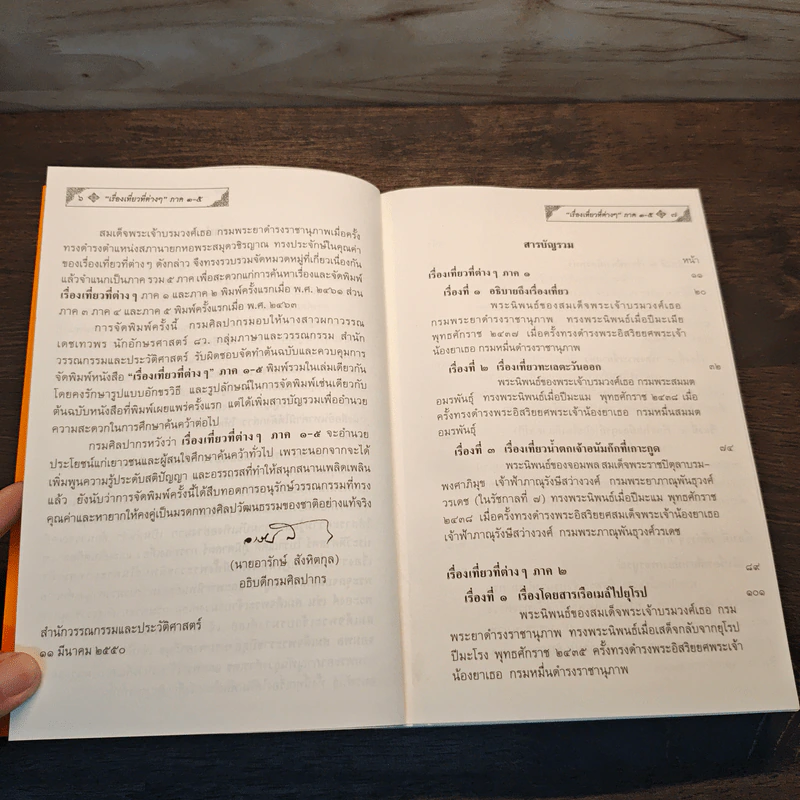 ๖ "เรื่องเที่ยวที่ต่างๆ" ภาค ๑-๕
สมเด็จพระเจ้าบรมวงศ์เธอ กรมพระยาดำรงราชานุภาพเมื่อครั้ง
ทรงดำรงตำแหน่งสภานายกหอพระสมุดวชิรญาณ ทรงประจักษ์ในคุณค่า
ของเรื่องเที่ยวที่ต่าง ๆ ดังกล่าว จึงทรงรวบรวมจัดหมวดหมู่ที่เกี่ยวเนื่องกัน
แล้วจำแนกเป็นภาค รวม ๕ ภาค เพื่อสะดวกแก่การค้นหาเรื่องและจัดพิมพ์
เรื่องเที่ยวที่ต่าง ๆ ภาค ๑ และภาค ๒ พิมพ์ครั้งแรกเมื่อ พ.ศ. ๒๔๖๑ ส่วน
ภาค ๓ ภาค ๔ และภาค ๕ พิมพ์ครั้งแรกเมื่อ พ.ศ. ๒๔๖๓
การจัดพิมพ์ครั้งนี้ กรมศิลปากรมอบให้นางสาวผกาวรรณ
เดชเทวพร นักอักษรศาสตร์ ๘ว. กลุ่มภาษาและวรรณกรรม สำนัก
วรรณกรรมและประวัติศาสตร์ รับผิดชอบจัดทำต้นฉบับและควบคุมการ
จัดพิมพ์หนังสือ "เรื่องเที่ยวที่ต่าง ๆ" ภาค ๑-๕ พิมพ์รวมในเล่มเดียวกัน
โดยคงรักษารูปแบบอักขรวิธี และรูปลักษณ์ในการจัดพิมพ์เช่นเดียวกับ
ต้นฉบับหนังสือที่พิมพ์เผยแพร่ครั้งแรก แต่ได้เพิ่มสารบัญรวมเพื่ออำนวย
ความสะดวกในการศึกษาค้นคว้าต่อไป
กรมศิลปากรหวังว่า เรื่องเที่ยวที่ต่าง ๆ ภาค ๑-๕ จะอำนวย
ประโยชน์แก่เยาวชนและผู้สนใจศึกษาค้นคว้าทั่วไป เพราะนอกจากจะได้
เพิ่มพูนความรู้ประดับสติปัญญา และอรรถรสที่ทำให้สนุกสนานเพลิดเพลิน
แล้ว ยังนับว่าการจัดพิมพ์ครั้งนี้ได้สืบทอดการอนุรักษ์วรรณกรรมที่ทรง
คุณค่าและหายากให้คงคู่เป็นมรดกทางศิลปวัฒนธรรมของชาติอย่างแท้จริง
(นายอารักษ์ สังหิตกุล)
อธิบดีกรมศิลปากร
สำนักวรรณกรรมและประวัติศาสตร์
๑๑ มีนาคม ๒๕๕๐
"เรื่องเที่ยวที่ต่างๆ" ภาค ๑-๕ ๗
สารบัญรวม
หน้า
เรื่องเที่ยวที่ต่าง ๆ ภาค ๑ ๑๑
เรื่องที่ ๑ อธิบายถึงเรื่องเที่ยว ๒๐
พระนิพนธ์ของสมเด็จพระเจ้าบรมวงศ์เธอ
กรมพระยาดำรงราชานุภาพ ทรงพระนิพนธ์เมื่อปีมะเมีย
พุทธศักราช ๒๔๓๗ เมื่อครั้งทรงดำรงพระอิสริยยศพระเจ้า
น้องยาเธอ กรมหมื่นดำรงราชานุภาพ
เรื่องที่ ๒ เรื่องเที่ยวทะเลตะวันออก ๓๒
พระนิพนธ์ของพระเจ้าบรมวงศ์เธอ กรมพระสมมต
อมรพันธุ์ ทรงพระนิพนธ์เมื่อปีมะแม พุทธศักราช ๒๔๓๘ เมื่อ
ครั้งทรงดำรงพระอิสริยยศพระเจ้าน้องยาเธอ กรมหมื่นสมมต
อมรพันธุ์
เรื่องที่ ๓ เรื่องเที่ยวน้ำตกเจ้าอนัมก๊กที่เกาะกูด ๗๔
พระนิพนธ์ของจอมพล สมเด็จพระราชปิตุลาบรม-
พงศาภิมุข เจ้าฟ้าภาณุรังษีสว่างวงศ์ กรมพระยาภาณุพันธุวงศ์
วรเดช (ในรัชกาลที่ ๗) ทรงพระนิพนธ์เมื่อปีมะแม พุทธศักราช
๒๔๓๘ เมื่อครั้งทรงดำรงพระอิสริยยศสมเด็จพระเจ้าน้องยาเธอ
เจ้าฟ้าภาณุรังษีสว่างวงศ์ กรมพระภาณุพันธุวงศ์วรเดช
เรื่องเที่ยวที่ต่าง ๆ ภาค ๒ ๘๙
เรื่องที่ ๑ เรื่องโดยสารเรือเมล์ไปยุโรป ๑๐๑
พระนิพนธ์ของสมเด็จพระเจ้าบรมวงศ์เธอ กรม
พระยาดำรงราชานุภาพ ทรงพระนิพนธ์เมื่อเสด็จกลับจากยุโรป
ปีมะโรง พุทธศักราช ๒๔๓๕ ครั้งทรงดำรงพระอิสริยยศพระเจ้า
น้องยาเธอ กรมหมื่นดำรงราชานุภาพ